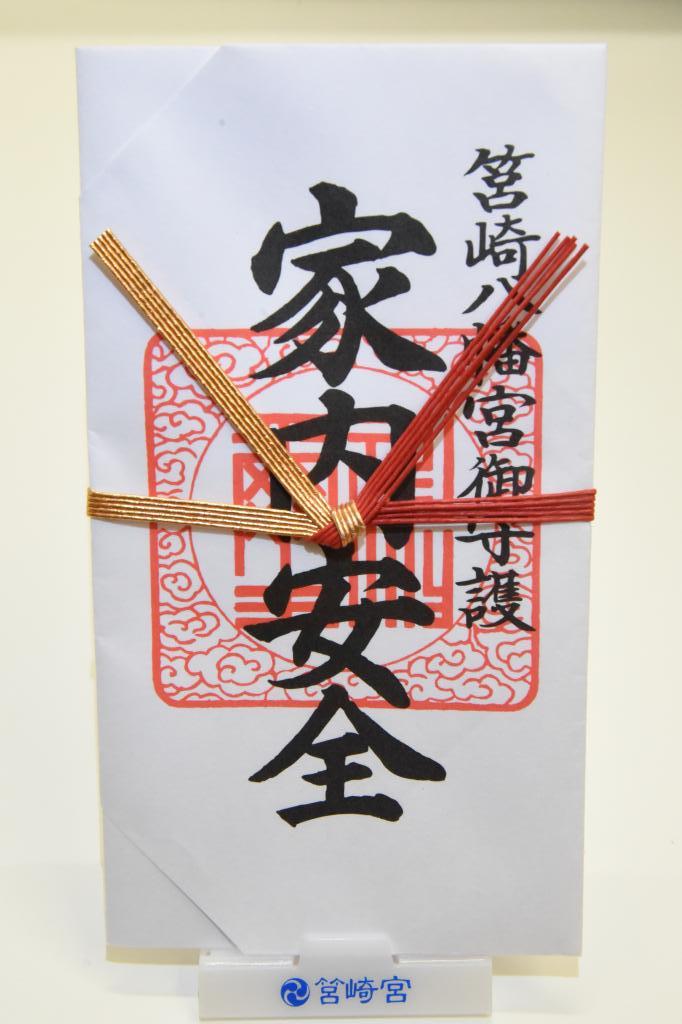 筥崎八幡宮御守護
家内安全
筥崎宮